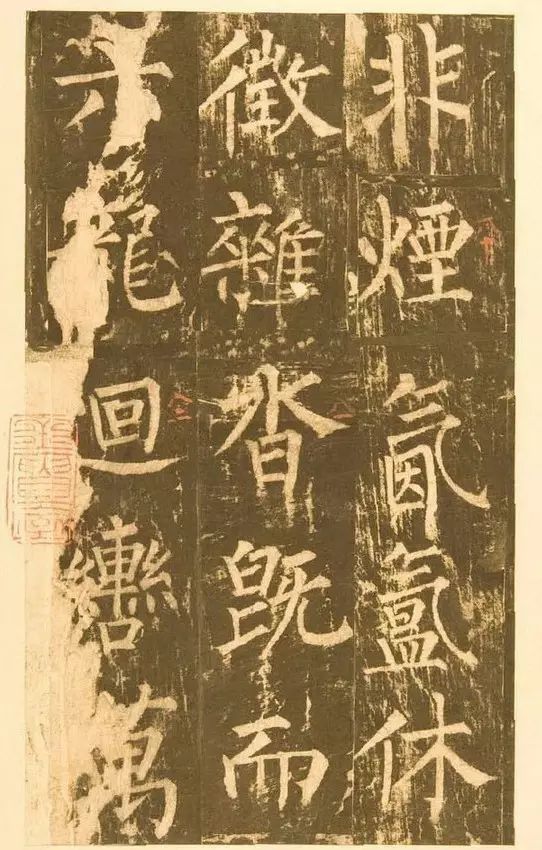 非煙氤氳休
徵雜沓既而
六龍迴轡萬